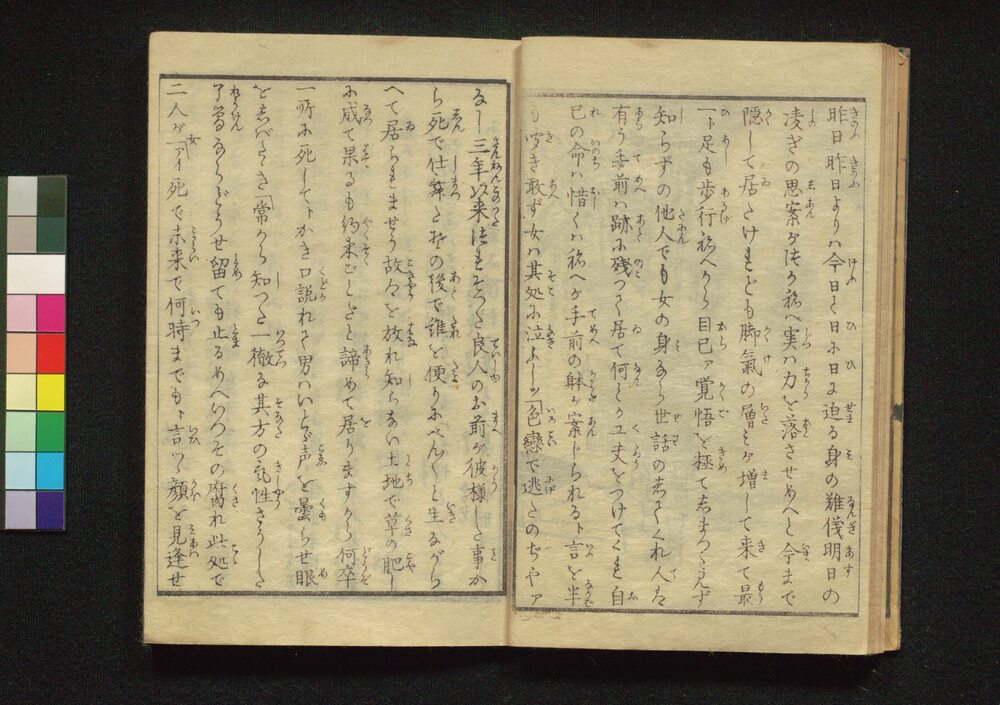 昨日昨日よりハ今日と日に日に迫る身の難儀明日の
凌ぎの思案が付かねへ実ハ力を落させめへと今まで
隠して居たけれども脚氣の層ミが増して来て最
一ト足も歩行ねへから目已ァ覚悟を極めてしまつた見ず
知らずの他人でも女の身なら世話のしてくれ人は
有う手前ハ跡に残つて居て何とか工夫をつけてくれ自
己の命ハ惜くハねへが手前の躰が案じられるト言を半
も聞き敢ず女ハ其処に泣ふしツ「色戀で逃たのぢやァ
なし三年以来つれそつた良人のお前が彼様した事か
ら死で仕舞た其の後で誰を便りにべんべんと生ながら
へて居られませう故郷を放れ知らない土地で草の肥し
に成て果るも約束ごとだと諦めて居りますから何卒
一所に死してトかき口説れて男ハいとゞ声を曇らせ眼
をしばたゝき「常から知つた一徹な其方の気性さうした
了簡ならどうせ留ても止るめへいつその腐れ此処で
二人が女「アイ死で未来で何時までもト言ツゝ顔を見逢せ